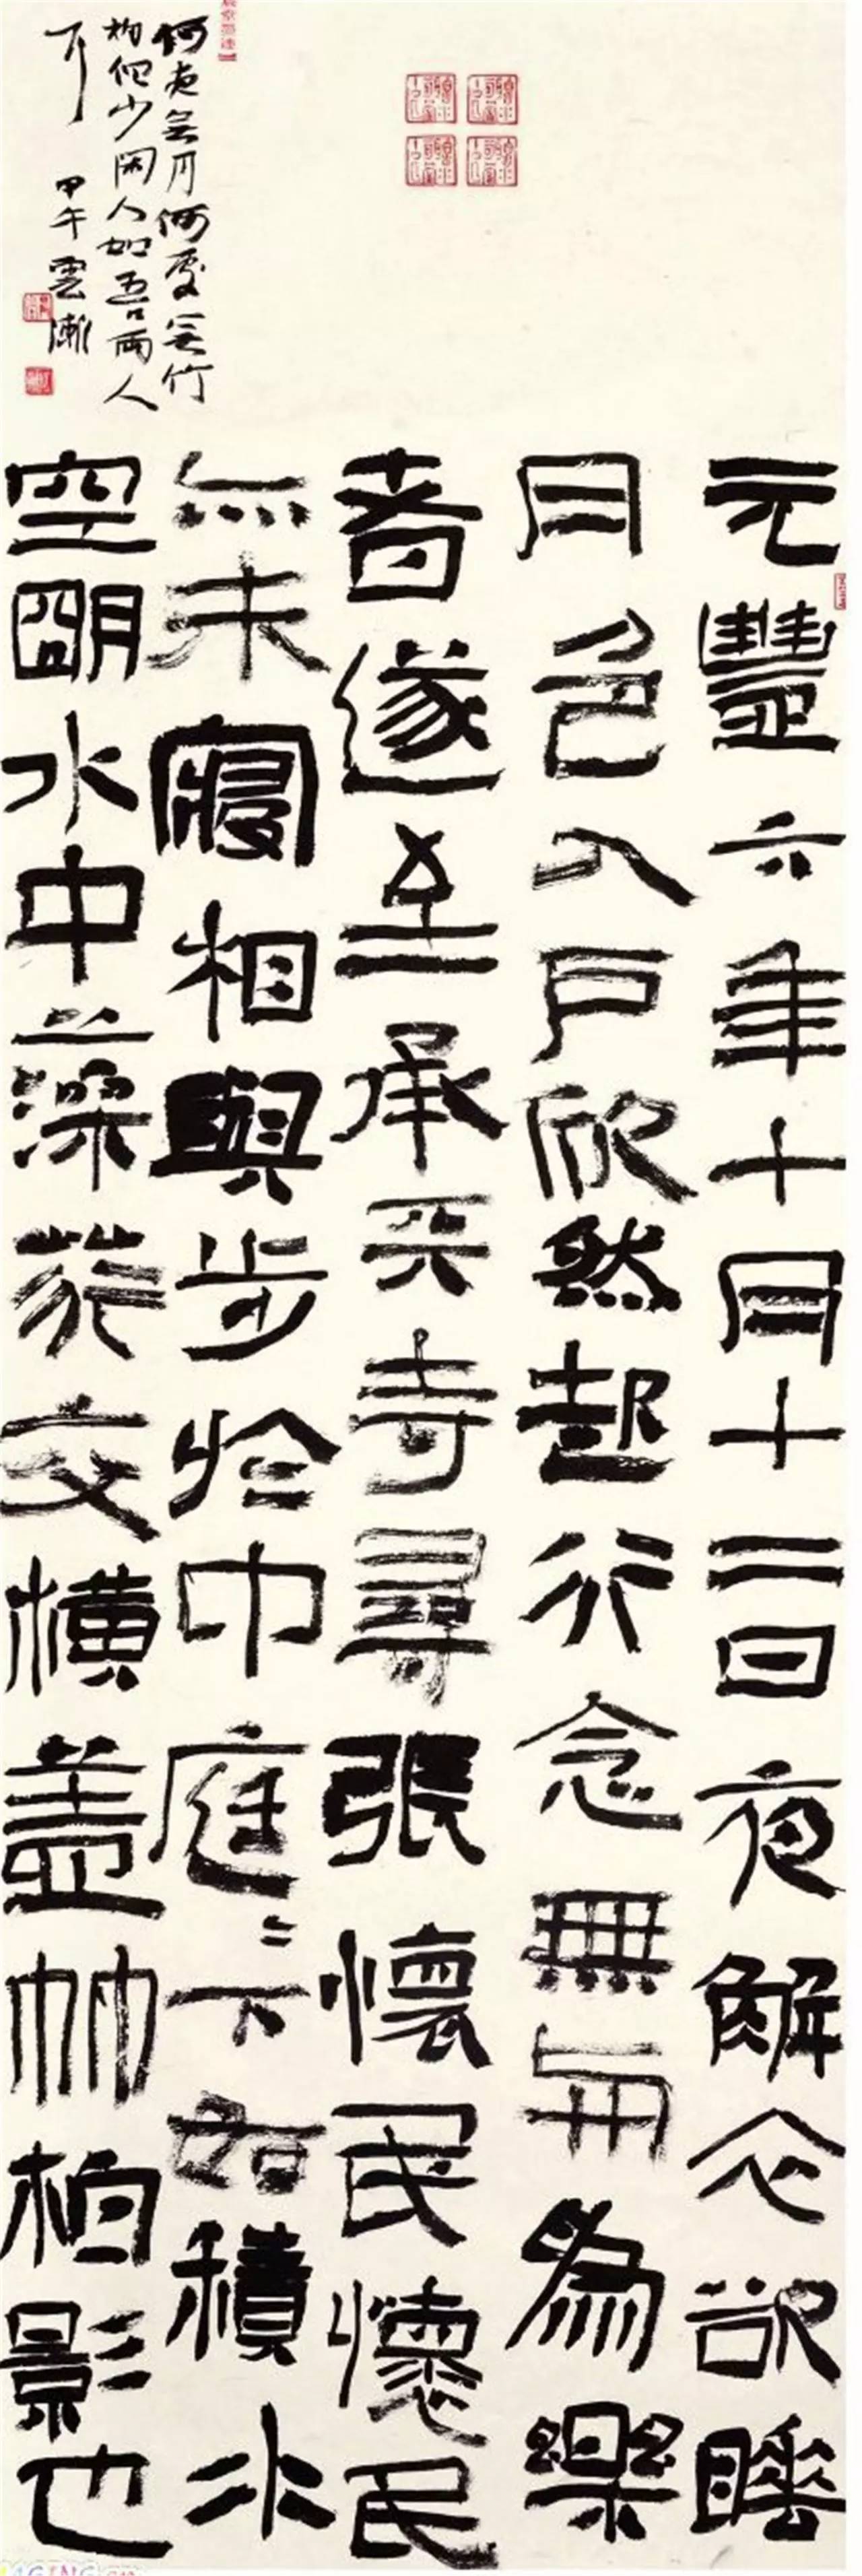 元豐六年十月十二日夜解衣欲睡
月色入戶欣然起行念無与為樂
者遂至承天寺尋張懷民懷民
亦未寢相與步於中庭〻下如積水
空明水中藻荇交橫蓋竹柏影也
何夜無月何處無竹
柏但少閑人如吾兩人
耳 甲午雲漸